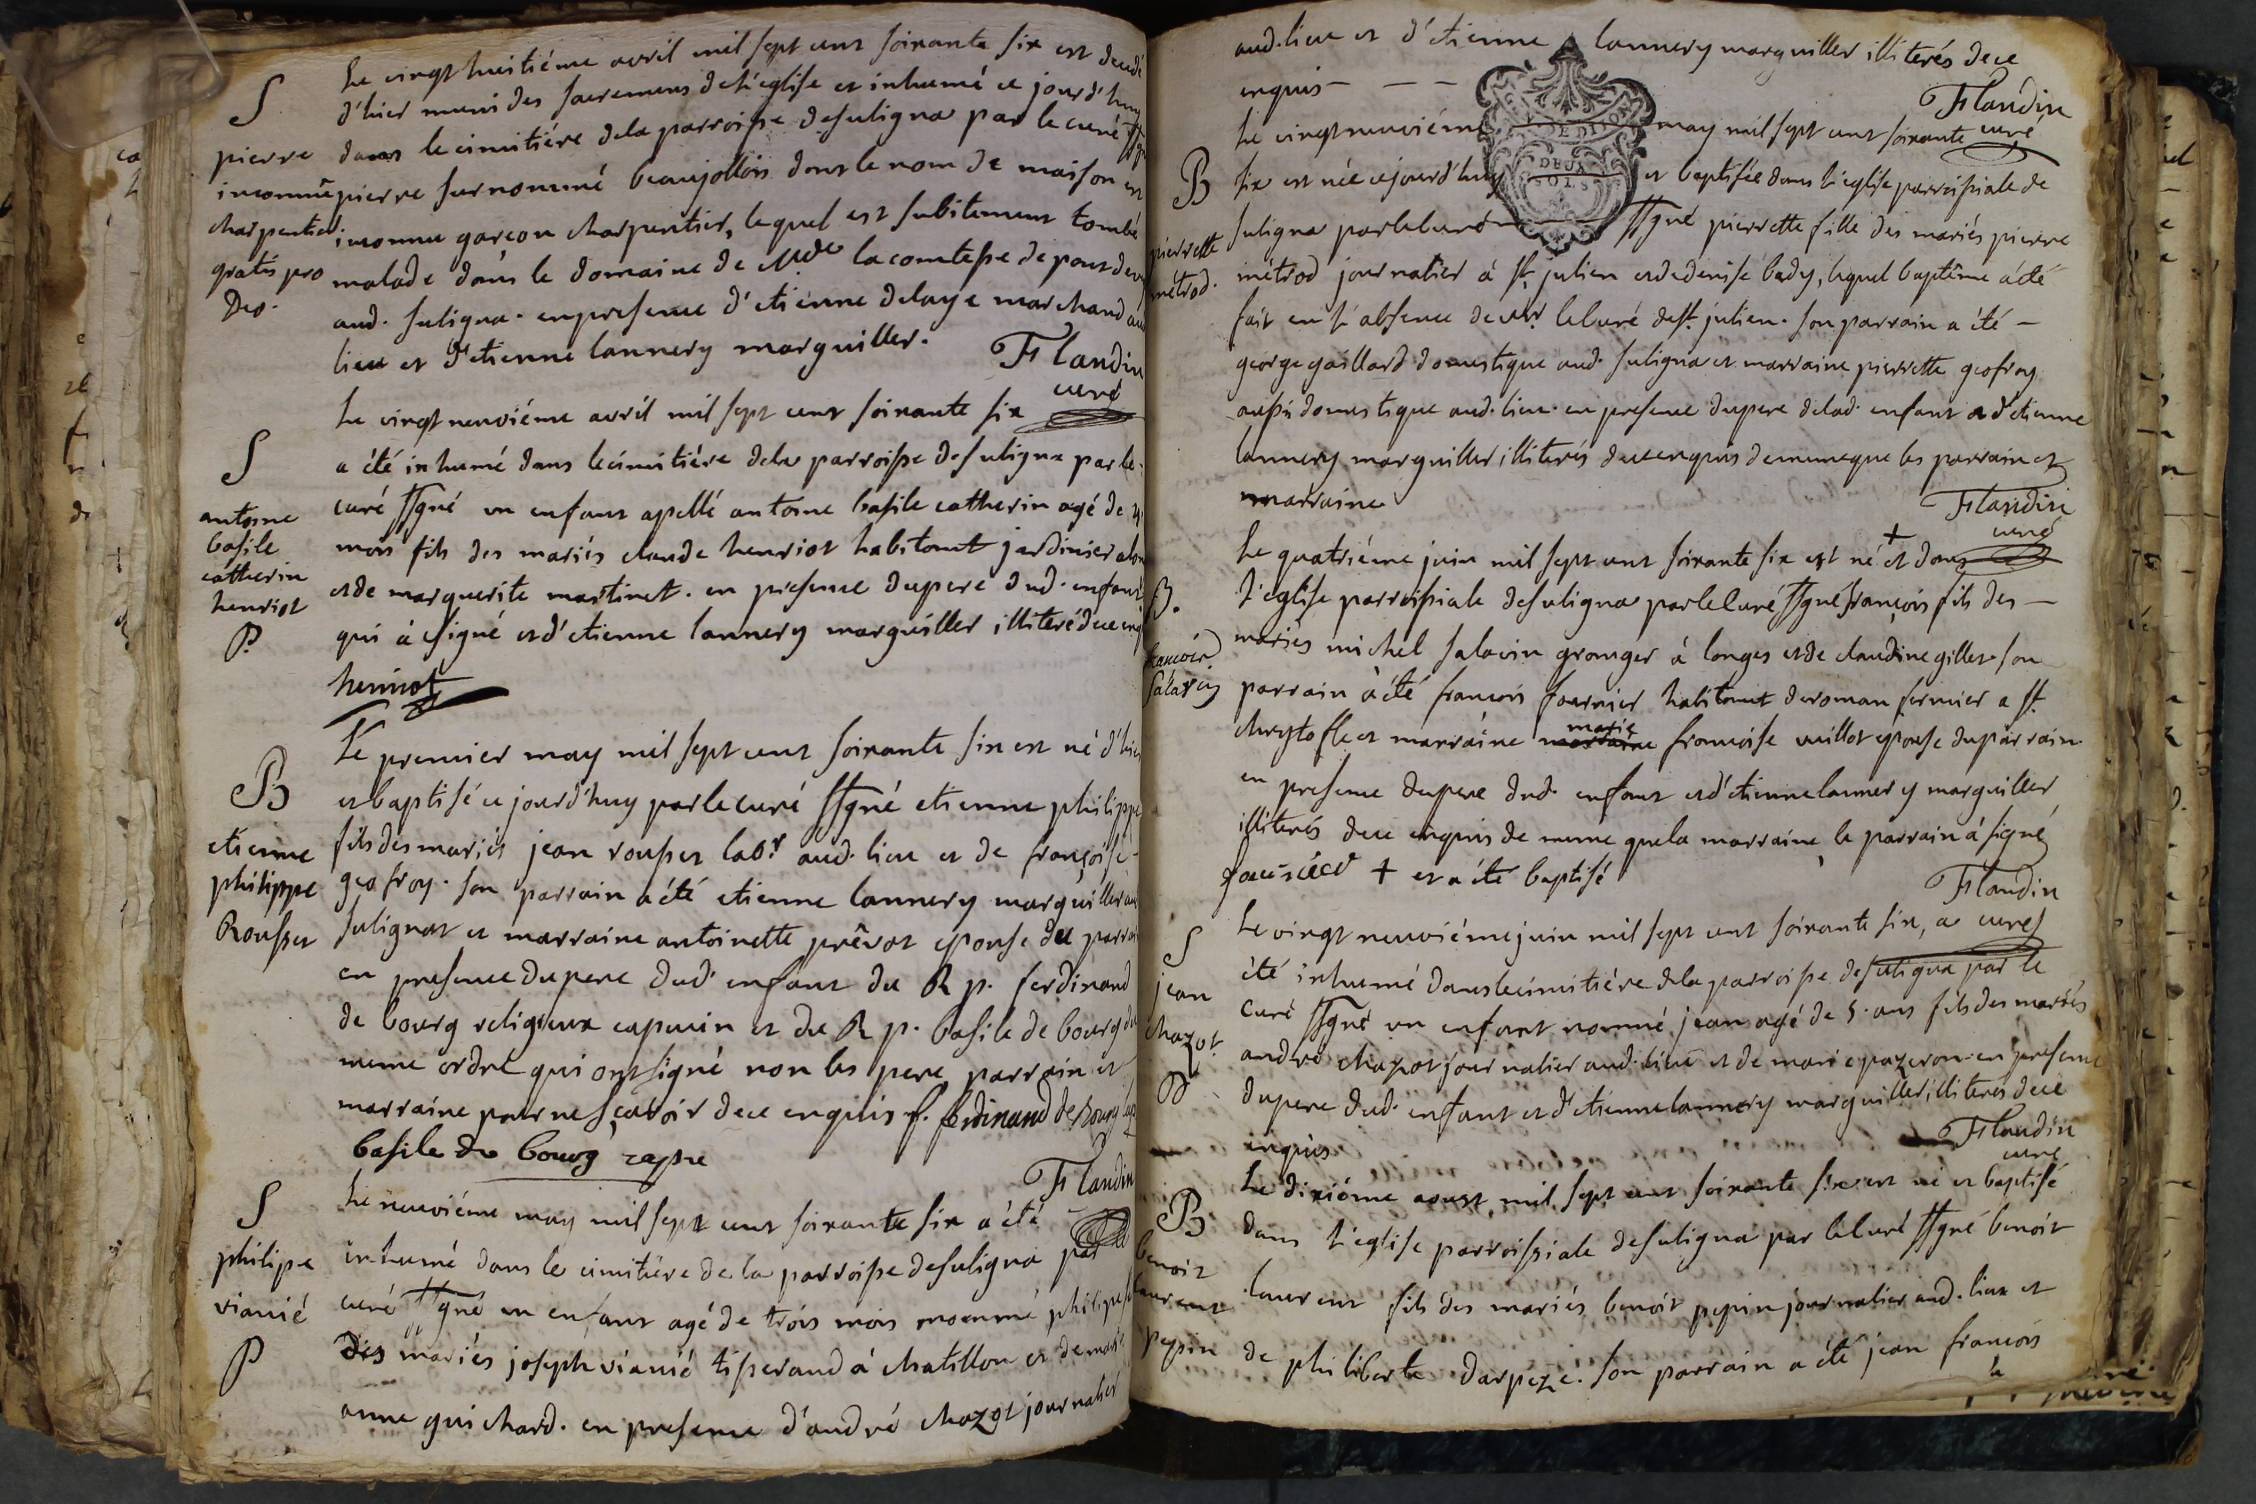 S
pierre
inconnu
charpentier
gratis pro
Deo.
Le vingt huitiéme avril mil sept cent soixante six est decedé
d'hier muni des sacremens de l'eglise et inhumé ce jourd'huy
dans le cimitiére dela parroisse de suligna par le curé ssgné
pierre surnommé beaujollois dont le nom de maison est
inconnu garcon charpentier, lequel est subitement tombé
malade dans le domaine de Mde la comtesse de pont de
aud. suligna. en presence d'etienne delaye marchand aud
lieu et d'etienne lannery marguiller.
Flandin
curé
S
antoine
basile
catherin
henriot
P.
Le vingt neuviéme avril mil sept cent soixante six
a été inhumé dans le cimitiére dela parroisse de suligna par le
curé ssgné un enfant apellé antoine basile catherin agé de 4
mois fils des mariés claude henriot habitant jardinier
et de marguerite martinet. en presence du pere dud. enfant
qui à signé et d'etienne lannery marguiller illiteré de ce enq
henriot
B
etienne
philippe
Rousset
Le premier may mil sept cent soixante six est né d'hier
et baptisé ce jourd'huy par le curé ssgné etienne philippe
fils des mariés jean rousset labr. aud. lieu et de françoise
geofroy. son parrain a été etienne lannery marguiller au
sulignat et marraine antoinette prêvot epouse du parrain
en presence du pere dud. enfant du R p. ferdinand
de bourg religieux capucin et du R p. basile de bourg du
meme ordre qui ont signé non les pere parrain et
marraine pour ne sçavoir de ce enquis f. ferdinand de Bourg cap
basile de bourg
Flandin
S
philipe
vianié
P
Le neuviéme may mil sept cent soixante six a été
inhumé dans le cimitiére de la parroisse de suligna par le
curé ssgné un enfant agé de trois mois nommé philipe fils
des mariés joseph vianié tisserand à chatillon et de marie
anne guichard. en presence d'andré chazot journalier
aud. lieu et d'etienne lannery marguiller illiterés de ce
enquis
Flandin
curé
DE DIJON
DEUX
SOLS
B
pierrette
métrod.
Le vingt neuviéme may mil sept cent soixante
six est née ce jourd'huy et baptisée dans l'eglise parroissiale de
suligna par le curé ssgné pierrette fille des mariés pierre
métrod journalier à st julien et de denise bady, lequel baptême a été
fait en l'absence de mr. le curé de st. julien. son parrain a été
george gaillard domestique aud. suligna et marraine pierrette geofroy
aussi domestique aud. lieu. en presence du pere de lad. enfant et d'etienne
lannery marguiller illiterés de ce enquis de meme que les parrain et
marraine
Flandin
curé
B.
francois
salavin
Le quatriéme juin mil sept cent soixante six est né + et dans
l'eglise parroissiale de suligna par le curé ssgné françois fils des
mariés michel salavin granger à longes et de claudine gillet. son
parrain à été francois fournier habitant de roman fermier a st.
chrystofle et marraine marraine marie francoise vuillot epouse du parrain.
en presence du pere dud. enfant et d'etienne lannery marguiller
illiterés de ce enquis de meme que la marraine, le parrain à signé
+ et a été baptisé
Flandin
curé
S
jean
chazot
P
Le vingt neuviéme juin mil sept cent soixante six, a
été inhumé dans le cimitiére dela parroisse de suligna par le
curé ssgné un enfant nommé jean agé de 5. ans fils des mariés
andré chazot journalier aud. lieu et de marie pazeron. en presence
du pere dud. enfant et d'etienne lannery marguiller, illiterés de ce
enquis
Flandin
curé
B
benoit
laurent
pepin
Le dixiéme aoust mil sept cent soixante six est né et baptisé
dans l'eglise parroissiale de suligna par le curé ssgné benoit
laurent fils des mariés benoit pepin journalier aud. lieu et
de philiberte darpezé. son parrain a été jean francois